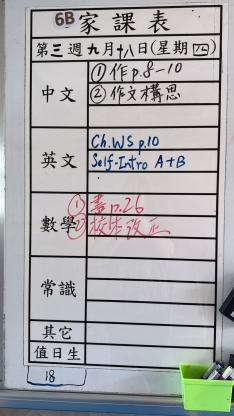 6B 家課表
第三週九月十八日(星期四)
中文
①作p.8-10
②作文構思
英文
Ch.WS p.10
Self-Intro A+B
數學
①書p.26
②校本改正
常識
其它
值日生
18